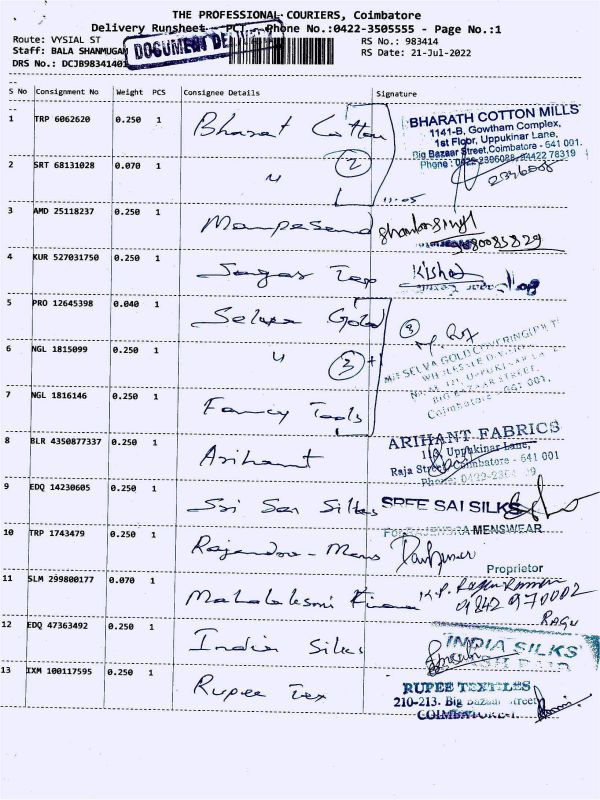 THE PROFESSIONAL COURIERS, Coimbatore
Delivery Runsheet - PCT - Phone No.:0422-3505555 - Page No.:1
Route: VYSIAL ST
RS No.: 983414
Staff: BALA SHANMUGAM
RS Date: 21-Jul-2022
DRS No.: DCJB98341401
DOCUMENT
S No Consignment No Weight PCS Consignee Details Signature
1 TRP 6062620 0.250 1 Bharat Cotton
BHARATH COTTON MILLS
1141-B, Gowtham Complex,
1st Floor, Uppukinar Lane,
Big Bazaar Street, Coimbatore - 641 001.
2 SRT 68131028 0.070 1 " 2
11:05
3 AMD 25118237 0.250 1 Manpasand
4 KUR 527031750 0.250 1 Sagar Tex
5 PRO 12645398 0.040 1 Selva Gold
6 NGL 1815099 0.250 1 " 3 +1
M/s SELVA GOLD COVERING (P) LTD
WHOLESALE DIVISION
BIG BAZAAR STREET,
Coimbatore - 641 001.
7 NGL 1816146 1 0.250 1 Fancy Tools
8 BLR 4350877337 0.250 1 Arihant
ARIHANT FABRICS
Uppukinar Lane,
Raja Street, Coimbatore - 641 001
9 EDQ 14230605 0.250 1 Sri Sai Silks
SREE SAI SILKS
10 TRP 1743479 0.250 1 Rajendra - Mens
For RAJENDRA MENSWEAR
Proprietor
11 SLM 299800177 0.070 1 Mahalaksmi Finance
9842970002
RAGU
12 EDQ 47363492 0.250 1 India Silks
INDIA SILKS
13 IXM 100117595 0.250 1 Rupee Tex
RUPEE TEXTILES
210-213. Big Bazaar Street
COIMBATORE-1.